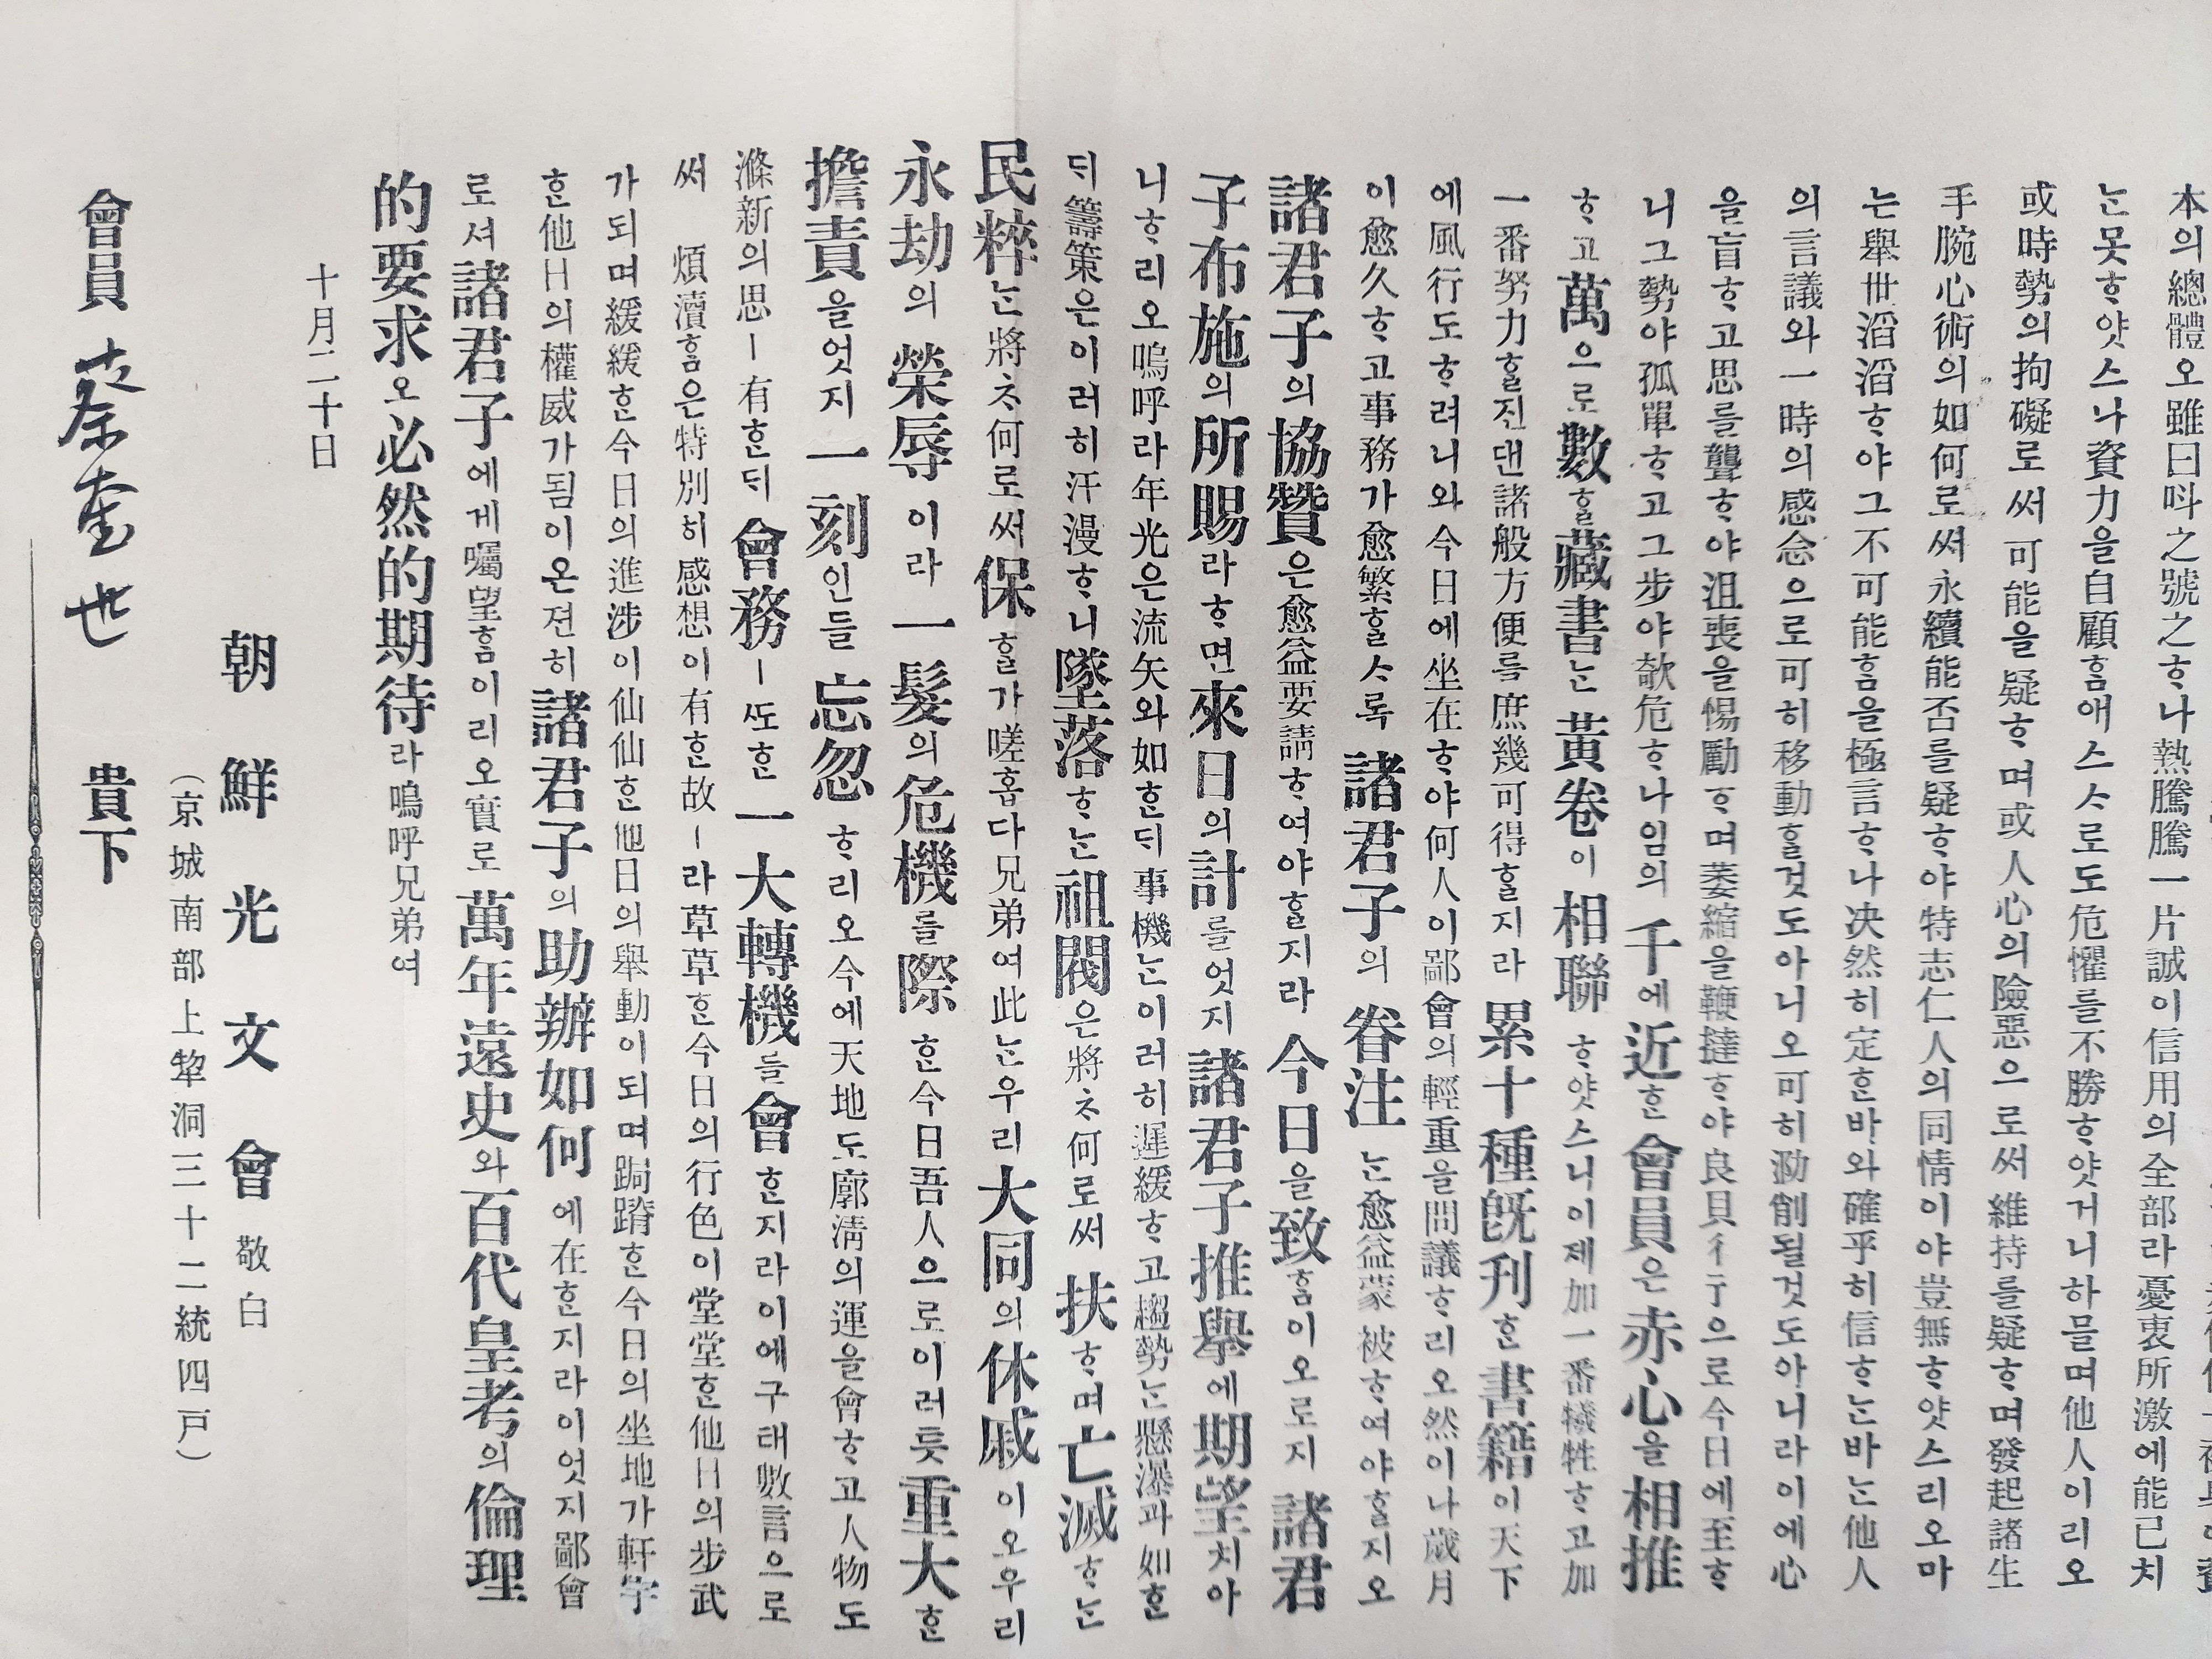 本의總體오雖曰呌之號之ᄒᆞ나熱騰騰一片誠이信用의全部라憂衷所激에能已치
ᄂᆞᆫ못ᄒᆞ얏스나資力을自顧ᄒᆞᆷ애스ᄉᆞ로도危懼를不勝ᄒᆞ얏거니하믈며他人이리오
或時勢의拘礙로써可能을疑ᄒᆞ며或人心의險惡으로써維持를疑ᄒᆞ며發起諸生
手腕心術의如何로써永續能否를疑ᄒᆞ야特志仁人의同情이야豈無ᄒᆞ얏스리오마
는擧世滔滔ᄒᆞ야그不可能ᄒᆞᆷ을極言ᄒᆞ나決然히定ᄒᆞᆫ바와確乎히信ᄒᆞᄂᆞᆫ바ᄂᆞᆫ他人
의言議와一時의感念으로可히移動ᄒᆞᆯ것도아니오可히泐削될것도아니라이에心
을盲ᄒᆞ고思를聾ᄒᆞ야沮喪을惕勵ᄒᆞ며萎縮을鞭撻ᄒᆞ야良貝彳亍으로今日에至ᄒᆞ
니그勢야孤單ᄒᆞ고그步야欹危ᄒᆞ나임의千에近ᄒᆞᆫ會員은赤心을相推
ᄒᆞ고萬으로數ᄒᆞᆯ藏書ᄂᆞᆫ黃卷이相聯ᄒᆞ얏스니이제加一番犧牲ᄒᆞ고加
一番努力ᄒᆞᆯ진댄諸般方便를庶幾可得ᄒᆞᆯ지라累十種旣刊ᄒᆞᆫ書籍이天下
에風行도ᄒᆞ려니와今日에坐在ᄒᆞ야何人이鄙會의輕重을問議ᄒᆞ리오然이나歲月
이愈久ᄒᆞ고事務가愈繁ᄒᆞᆯᄉᆞ록諸君子의眷注ᄂᆞᆫ愈益蒙被ᄒᆞ여야ᄒᆞᆯ지오
諸君子의協贊은愈益要請ᄒᆞ여야ᄒᆞᆯ지라今日을致ᄒᆞᆷ이오로지諸君
子布施의所賜라ᄒᆞ면來日의計를엇지諸君子推擧에期望치아
니ᄒᆞ리오嗚呼라年光은流矢와如ᄒᆞᆫ듸事機ᄂᆞᆫ이러히遲緩ᄒᆞ고趨勢ᄂᆞᆫ懸瀑과如ᄒᆞᆫ
듸籌策은이러히汗漫ᄒᆞ니墜落ᄒᆞᄂᆞᆫ祖閥은將ᄎᆞ何로써扶ᄒᆞ며亡滅ᄒᆞᄂᆞᆫ
民粹ᄂᆞᆫ將ᄎᆞ何로써保ᄒᆞᆯ가嗟홉다兄弟여此ᄂᆞᆫ우리大同의休戚이오우리
永劫의榮辱이라一髮의危機를際ᄒᆞᆫ今日吾人으로이러틋重大ᄒᆞᆫ
擔責을엇지一刻인들忘忽ᄒᆞ리오今에天地도廓淸의運을會ᄒᆞ고人物도
滌新의思ㅣ有ᄒᆞᆫ듸會務ㅣᄯᅩᄒᆞᆫ一大轉機를會ᄒᆞᆫ지라이에구태數言으로
써 煩瀆ᄒᆞᆷ은特別히感想이有ᄒᆞᆫ故ㅣ라草草ᄒᆞᆫ今日의行色이堂堂ᄒᆞᆫ他日의步武
가되며緩緩ᄒᆞᆫ今日의進涉이仙仙ᄒᆞᆫ他日의擧動이되며跼蹐ᄒᆞᆫ今日의坐地가軒宇
ᄒᆞᆫ他日의權威가됨이온젼히諸君子의助辦如何에在ᄒᆞᆫ지라이엇지鄙會
로셔諸君子에게囑望ᄒᆞᆷ이리오實로萬年遠史와百代皇考의倫理
的要求오必然的期待라嗚呼兄弟여
十月二十日
朝鮮光文會敬白
(京城南部上犂洞三十二統四戸)
會員 蔡奎世 貴下